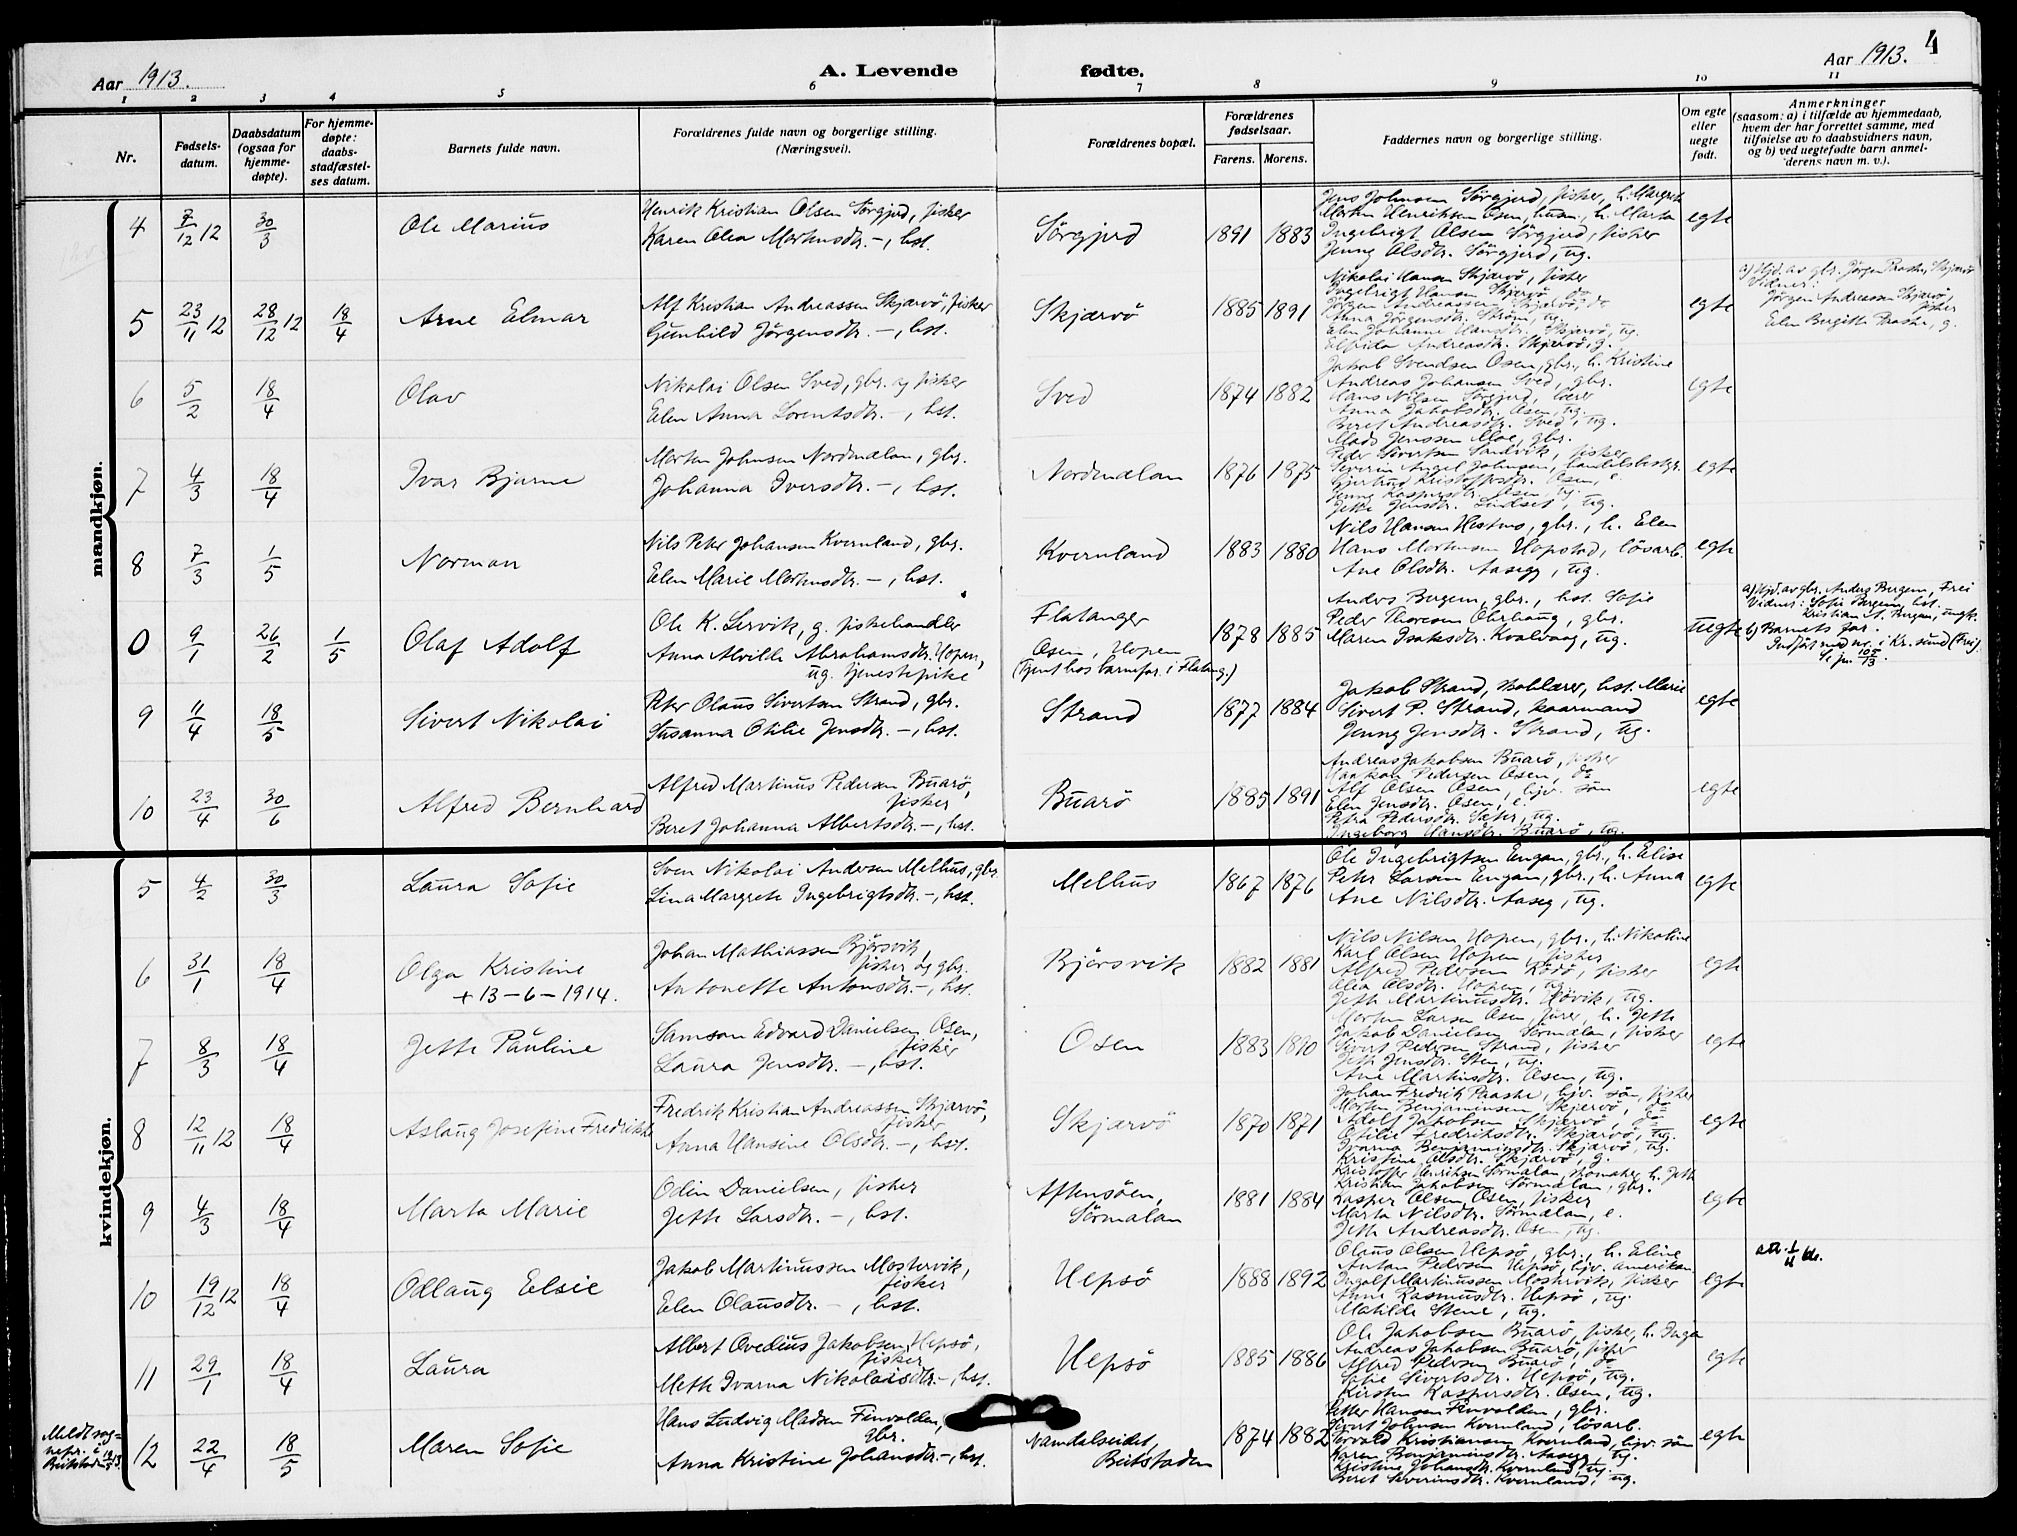 4
Aar 1913.
A. Levende fødte.
Aar 1913.
1 2 3 4 5 6 7 8 9 10 11
Nr.
Fødsels-
datum.
Daabsdatum
(ogsaa for
hjemme-
døpte).
For hjemme-
døpte:
daabs-
stadfæstel-
ses datum.
Barnets fulde navn.
Forældrenes fulde navn og borgerlige stilling.
(Næringsvei).
Forældrenes bopæl.
Forældrenes
fødselsaar.
Farens. Morens.
Faddernes navn og borgerlige stilling.
Om egte
eller
uegte
født.
Anmerkninger
(saasom: a) i tilfælde av hjemmedaab,
hvem der har forrettet samme, med
tilføielse av to daabsvidners navn,
og b) ved uegtefødte barn anmel-
derens navn m. v.).
mandkjøn.
4 7/12 12 30/3 Ole Marius
Henrik Kristian Olsen Sørgjerd, fisker
Karen Olea Mortensdtr. –, hst.
Sørgjerd 1891 1883
Jens Johnsen Sørgjerd, fisker, h. Margrete
Morten Henriksen Osen, husm., h. Marta
Ingebrigt Olsen Sørgjerd, fisker
Jenny Olsdtr. Sørgjerd, ug.
egte
5 23/11 12 28/12 12 18/4 Arne Elmar
Alf Kristian Andreassen Skjærvö, fisker
Gunhild Jørgensdtr. –, hst.
Skjærvö 1885 1891
Nikolai Hansen Skjærvö, fisker
Ingebrigt Hansen Skjærvö, do
Jørgen Andreassen Skjærvö, do
Anna Jørgensdtr. Strøm, ug.
Elen Johanne Hansdtr. Skjervö, ug.
Elfrida Andreasdtr. Skjærvö, g.
egte
a) Hjd. av gbr. Jørgen Paaske, Skjærvö
Vidner:
Jørgen Andreassen Skjærvö,
fisker
Elen Birgitte Paaske, g.
6 5/2 18/4 Olav
Nikolai Olsen Sved, gbr. og fisker
Elen Anna Lorentsdtr. –, hst.
Sved 1874 1882
Jakob Svendsen Osen, gbr., h. Kristine
Andreas Johansen Sved, gbr.
Hans Nilsen Sørgjerd, lærer
Anna Jakobsdtr. Osen, ug.
Beret Andreasdtr. Sved, ug.
egte
7 4/3 18/4 Ivar Bjarne
Morten Johnsen Nordmelan, gbr.
Johanna Iversdtr. –, hst.
Nordmelan 1876 1875
Mads Jenssen Moe, gbr.
Peder Sivertsen Sandvik, fisker
Severin Angel Johnsen, handelsbestyr.
Gjertrud Kristoffersdtr. Osen, e.
Jenny Kaspersdtr. Osen, ug.
Jette Jensdtr. Sundset, ug.
egte
8 7/3 1/5 Norman
Nils Peter Johansen Kvernland, gbr.
Elen Marie Mortensdtr. –, hst.
Kvernland 1883 1880
Nils Hansen Hestnes, gbr., h. Elen
Hans Mortensen Hopstad, løsarb.
Ane Olsdtr. Aasegg, ug.
egte
0 9/1 26/2 1/5 Olaf Adolf
Ole K. Lervik, g. fiskehandler
Anna Alvilde Abrahamsdtr. Hopen,
ug. tjenestepike
Flatanger
Osen, Hopen
(Tjent hos barnefar. i Flatang.)
1878 1885
Anders Bergem, gbr., hst. Sofie
Peder Thoresen Ohrhaug, gbr.
Maren Isaksdtr. Kvalvaag, ug.
uegte
a) Hjd. av gbr. Anders Bergem, Frei
Vidner: Sofie Bergem, hst.
Kristian A. Bergem, ungk.
b) Barnets far.
Indført med nr. i Kr.sund (Frei).
Se jnr. 105/13.
9 11/4 18/5 Sivert Nikolai
Peter Olaus Sivertsen Strand, gbr.
Susanna Otilie Jensdtr. –, hst.
Strand 1877 1884
Jakob Strand, skolelærer, hst. Marie
Sivert P. Strand, kaarmand
Jenny Jensdtr. Strand, ug.
egte
10 23/4 30/6 Alfred Bernhard
Alfred Martinus Pedersen Buarö,
fisker
Beret Johanna Albertsdtr. –, hst.
Buarö 1885 1891
Andreas Jakobsen Buarö, fisker
Haakon Pedersen Osen, do
Alf Olsen Osen, hjv. søn
Elen Jensdtr. Osen, e.
Petra Pedersdtr. Sæter, ug.
Ingeborg Hansdtr. Buarö, ug.
egte
kvindekjøn.
5 4/2 30/3 Laura Sofie
Sven Nikolai Andersen Melhus, gbr.
Lina Margrete Ingebrigtsdtr. –, hst.
Melhus 1867 1876
Ole Ingebrigtsen Engan, gbr., h. Elise
Peter Larsen Engan, gbr., h. Anna
Ane Nilsdtr. Aaseg, ug.
egte
6 31/1 18/4 Olga Kristine
+ 13–6–1914.
Johan Mathiassen Bjørsvik,
fisker og gbr.
Antonette Antonsdtr. –, hst.
Bjørsvik 1882 1881
Nils Nilsen Hopen, gbr., h. Nikoline
Karl Olsen Hopen, fisker
Alfred Pedersen Rødö, fisker
Olea Olsdtr. Hopen, ug.
Jette Martinusdtr. Høvik, ug.
egte
7 8/3 18/4 Jette Pauline
Samson Edvard Danielsen Osen,
fisker
Laura Jensdtr. –, hst.
Osen 1883 1890
Morten Larsen Osen, fører, h. Jette
Jakob Danielsen Sørmelan, fisker
Sivert Pedersen Strand, fisker
Jette Jensdtr. Sten, ug.
Ane Martinsdtr. Osen, ug.
egte
8 12/11 12 18/4 Aslaug Josefine Fredrikke
Fredrik Kristian Andreassen Skjærvö,
fisker
Anna Hansine Olsdtr. –, hst.
Skjærvö 1870 1871
Johan Fredrik Paaske, hjv. søn, fisker
Morten Benjaminsen Skjervö, do
Adolf Jakobsen Skjærvö, do
Otilie Fredriksdtr. Skjærvö, ug.
Ivarna Benjaminsdtr. Skjærvö, ug.
Kristine Olsdtr. Skjærvö, g.
egte
9 4/3 18/4 Marta Marie
Odin Danielsen, fisker
Jette Larsdtr. –, hst.
Aftensøen,
Sørmelan
1881 1884
Kristoffer Henriksen Sørmelan, skomaker, h. Jette
Kristian Jakobsen Sørmelan, gbr.
Kasper Olsen Osen, fisker
Marta Nilsdtr. Sørmelan, e.
Jette Andreasdtr. Osen, ug.
egte
10 19/12 12 18/4 Odlaug Elsie
Jakob Martinussen Mostervik,
fisker
Elen Olausdtr. –, hst.
Hepsö 1888 1892
Olaus Olsen Hepsö, gbr., h. Eline
Anton Pedersen Hepsö, hjv. amerikan.
Ingolf Martinussen Mostervik, fisker
Anne Rasmusdtr. Hepsö, ug.
Matilde Stene, ug.
egte
11 29/1 18/4 Laura
Albert Ovedius Jakobsen Hepsö,
fisker
Mette Ivarna Nikolaisdtr. –, hst.
Hepsö 1885 1886
Ole Jakobsen Buarö, fisker, h. Inga
Andreas Jakobsen Buarö, fisker
Alfred Pedersen Buarö, do
Sofie Sivertsdtr. Hepsö, ug.
Kirsten Kaspersdtr. Osen, ug.
egte
Meldt sog-
nepr. i
Beitstaden
12 22/4 18/5 Maren Sofie
Hans Ludvig Madsen Finvolden,
gbr.
Anna Kristine Johansdtr. –, hst.
Namdalseidet,
Beitstaden
1874 1882
Petter Hansen Finvolden, gbr.
Sivert Johnsen Kvernland, løsarb.
Torvald Kristiansen Kvernland, hjv. søn
Karen Benjaminsdtr. Aasegg, ug.
Kristine Johansdtr. Kvernland, ug.
Beret Severinsdtr. Kvernland, ug.
egte